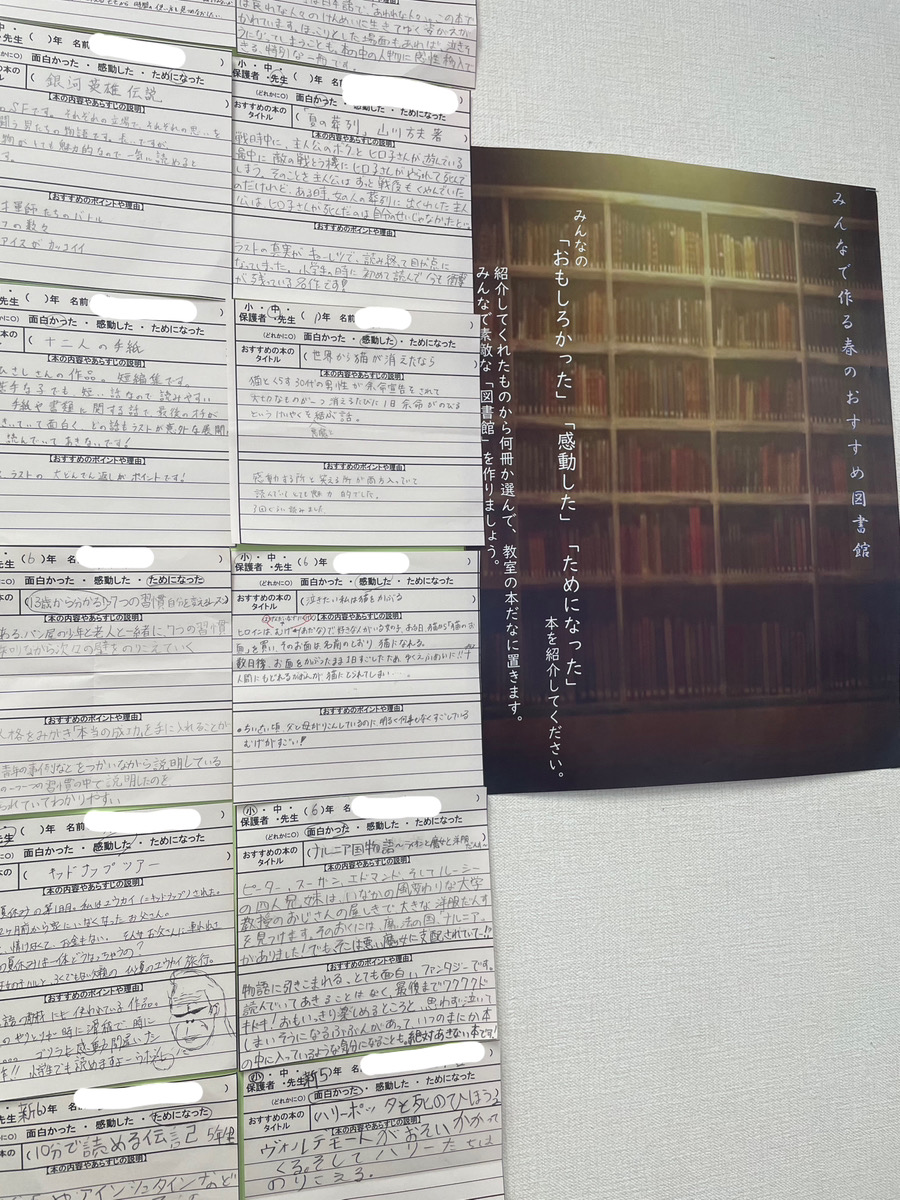 みんなで作る春のおすすめ図書館
みんなの
「おもしろかった」「感動した」「ためになった」
本を紹介してください。
紹介してくれたものから何冊か選んで、教室の本だなに置きます。
みんなで素敵な「図書館」を作りましょう。
きる、特別な一冊です。
小・中・
保護者・先生 ( )年 名前
(どれかに○) 面白かった・感動した・ためになった
おすすめの本の
タイトル
(「夏の葬列」山川方夫 著)
【本の内容やあらすじの説明】
戦時中に、主人公のボクとヒロ子さんが遊んでいる
最中に敵の戦とう機にヒロ子さんが
しまう。そのことを主人公はずっと
のだけれど、ある日、女の人の葬列に出くわした主人
公は、ヒロ子さんが死んだのは自分のせいじゃなかったと
【おすすめのポイントや理由】
ラストの真実がキョーレツで、読み終えて目が点に
なってました。小学生の時に初めて読んで今も衝撃
が残っている名作です!!
小・中・
保護者・先生 ( )年
(どれかに○) 面白かった・感動した・ためになった
おすすめの本の
タイトル
(世界から猫が消えたなら)
【本の内容やあらすじの説明】
猫とくらす30代の男性が余命宣告をされて
大切なものが一つ消えるたびに1日余命がのびる
というけいやくを結ぶ話。
悪魔と
【おすすめのポイントや理由】
感動する所と笑える所が両方入っていて
読んでいてとても魅力的でした。
小・中・
保護者・先生 (6)年 名前
(どれかに○) 面白かった・感動した・ためになった
おすすめの本の
タイトル
(泣きたい私は猫をかぶる)
【本の内容やあらすじの説明】
ヒロインは、むげ(あだな)で好きな人がいる女の子。ある日、猫から「猫のお
面」を買い、そのお面は名前のとおり猫になれる。
数日後、お面をかぶったまま1日すごしたため、
人間にもどれるかめんが猫にとられてしまい…。
【おすすめのポイントや理由】
・ちいさい頃、父と母がりこんしているのに、明るく何事もなくすごしている
むげがすごい!!
小・中・
保護者・先生 (6)年 名
(どれかに○) 面白かった・感動した・ためになった
おすすめの本の
タイトル
(ナルニア国物語〜ライオンと魔女と洋服だんす〜)
【本の内容やあらすじの説明】
ピーター、スーザン、エドマンド、そしてルーシー
の四人兄妹は、いなかの風変わりな大学
教授のおじさんの屋しきで大きな洋服だんす
を見つけます。そのおくには、魔法の国、ナルニア
がありました!でもそこは悪い魔女に支配されていて…!?
【おすすめのポイントや理由】
物語に引きこまれる、とても面白いファンタジーです。
読んでいてあきることはなく、最後までワクワク
ドキドキ!おもいっきり楽しめるところと、思わず泣いて
しまいそうになるぶぶんがあって、いつのまにか本
の中に入っているような気分になることも。絶対あきない本です!
小・中・
保護者・先生 新5)年
(どれかに○) 面白かった・感動した・ためになった
おすすめの本の
タイトル
(ハリーポッタと死のひほう)
【本の内容やあらすじの説明】
ヴォルデモートがおそいかかって
くる。そしてハリーたちは
のりこえる。
先生 ( )年 名前
面白かった・感動した・ためになった
(銀河英雄伝説)
【本の内容やあらすじの説明】
のSFです。それぞれの立場で、それぞれの思いを
闘う男たちの物語です。長いですが、
物がとても魅力的なので一気に読めると
す。
【おすすめポイントや理由】
軍師たちのバトル
の数々
アイスがカッコイイ
先生 ( )年 名前
面白かった・感動した・ためになった
(十二人の手紙)
【本の内容やあらすじの説明】
さしさんの作品。短編集です。
苦手な子でも、短い話なので読みやすい
手紙や書類に関する話で、最後のオチが
きいていて面白く、どの話もラストが意外な展開
読んでいてあきないです!
【おすすめポイントや理由】
ラストの大どんでん返しがポイントです!
(6)年 名
面白かった・感動した・ためになった
(13歳から分かる!7つの習慣 自分を変える
【本の内容やあらすじの説明】
ある、パン屋の少年と老人と一緒に、7つの習慣
ながら次々の
【おすすめのポイントや理由】
人格をみがき「本当の成功」を手に入れることが
をつかいながら説明している
習慣の中で説明したのを
られていてわかりやすい
先生 ( )年 名前
面白かった・感動した・ためになった
(キッドナップツアー)
【本の内容やあらすじの説明】
夏休みの第1日目、私はユウカイ(=キッドナップ)された。
2ヶ月前から家にいなくなったお父さん。
情けなくて、お金もない。そんなお父さんに連れ
の夏休みは一体どうなっちゃうの?
ユウカイ旅行。
【おすすめポイントや理由】
にも使われている作品。
のやりとりが時に滑稽で、時に
ゴリラと
小学生でも読めますよー
先生 新6)年
面白かった・感動した・ためになった
(10分で読める伝記 5年生
【本の内容やあらすじの説明】
アインシュタインなど